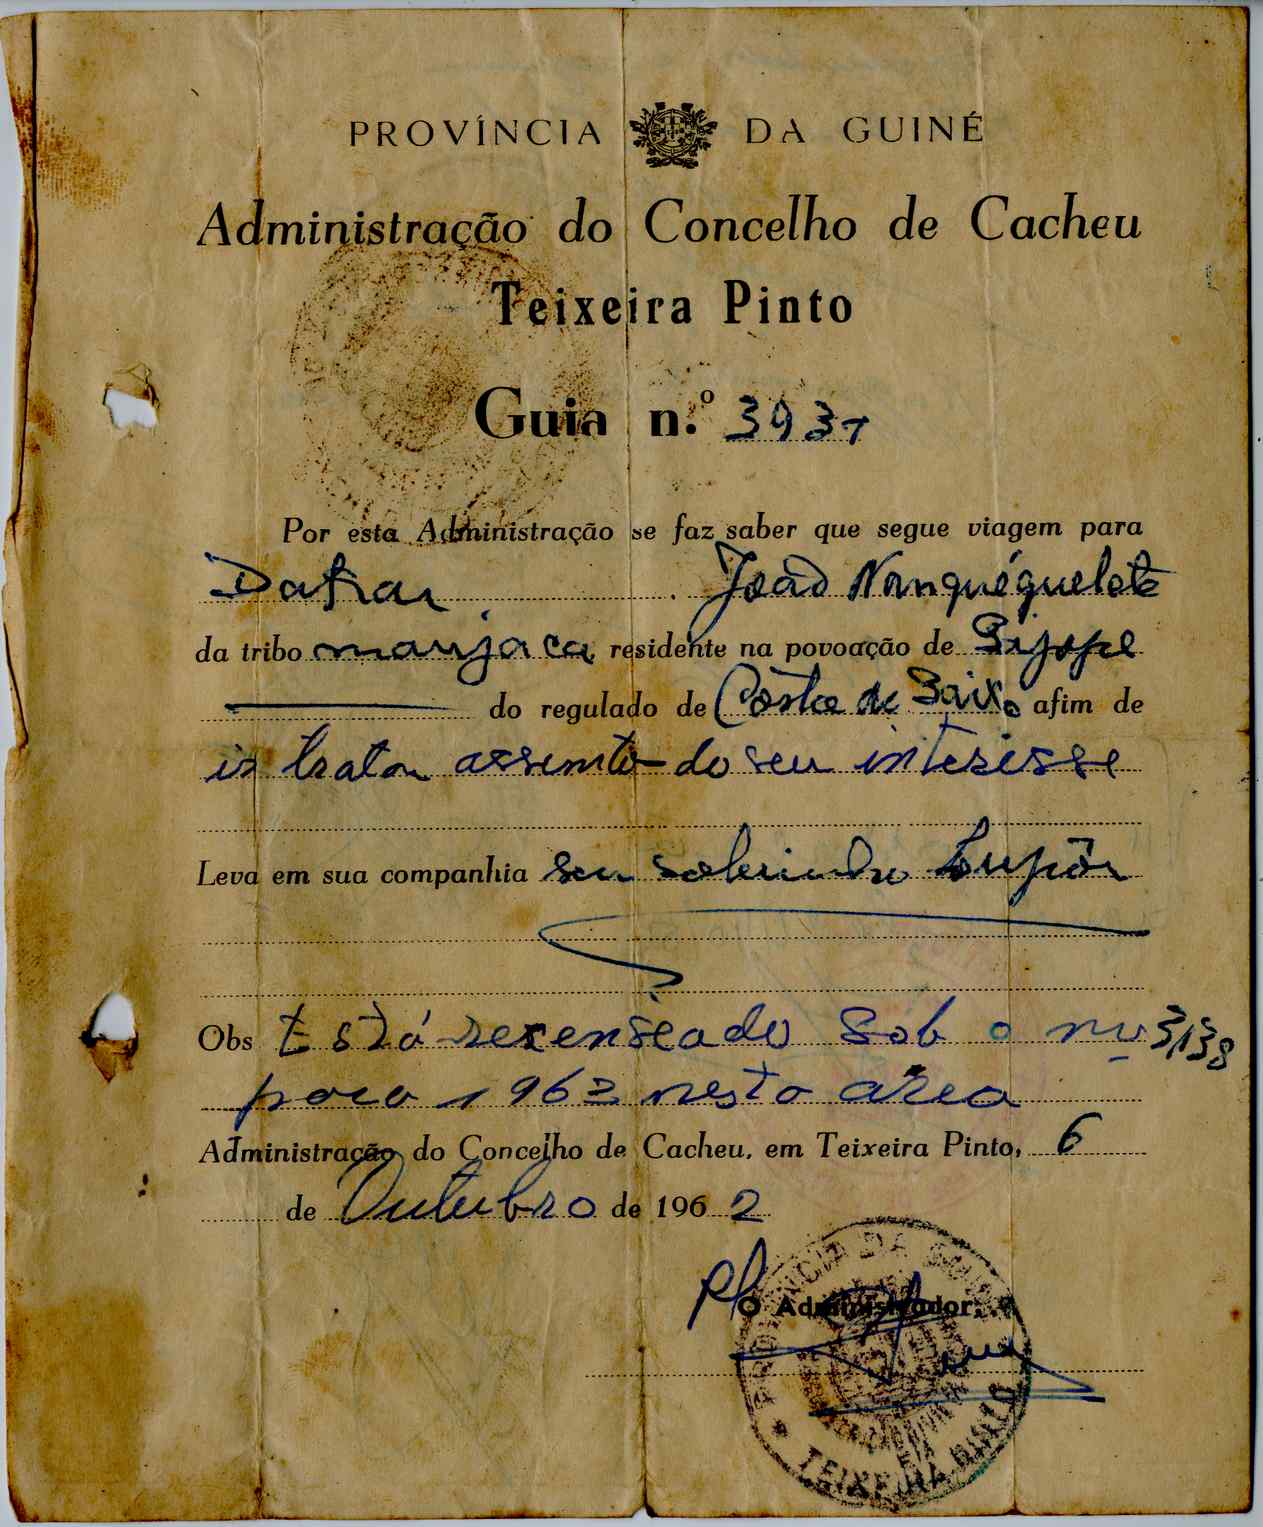 PROVÍNCIA DA GUINÉ
Administração do Concelho de Cacheu
Teixeira Pinto
Guia n.º 3937
Por esta Administração se faz saber que segue viagem para
Dakar João Nanquéguelote
da tribo manjaca residente na povoação de Bijope
do regulado de Costa de Baixo afim de
ir tratar assunto do seu interesse
Leva em sua companhia seu sobrinho Lupôr
Obs Está recenseado sob o nº 3138
para 1963 nesta area
Administração do Concelho de Cacheu, em Teixeira Pinto, 6
de Outubro de 1962
O Administrador,
PROVÍNCIA DA GUINÉ
TEIXEIRA PINTO